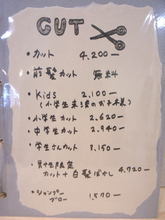 CUT
・カット 4,200—
・前髪カット 無料
・Kids 2,100—
(小学生未満のお子様)
・小学生カット 2,620
・中学生カット 2,940
・学生さんカット 3,150
カット+白髪ぼかし 4,720
・シャンプー
ブロー 1,570